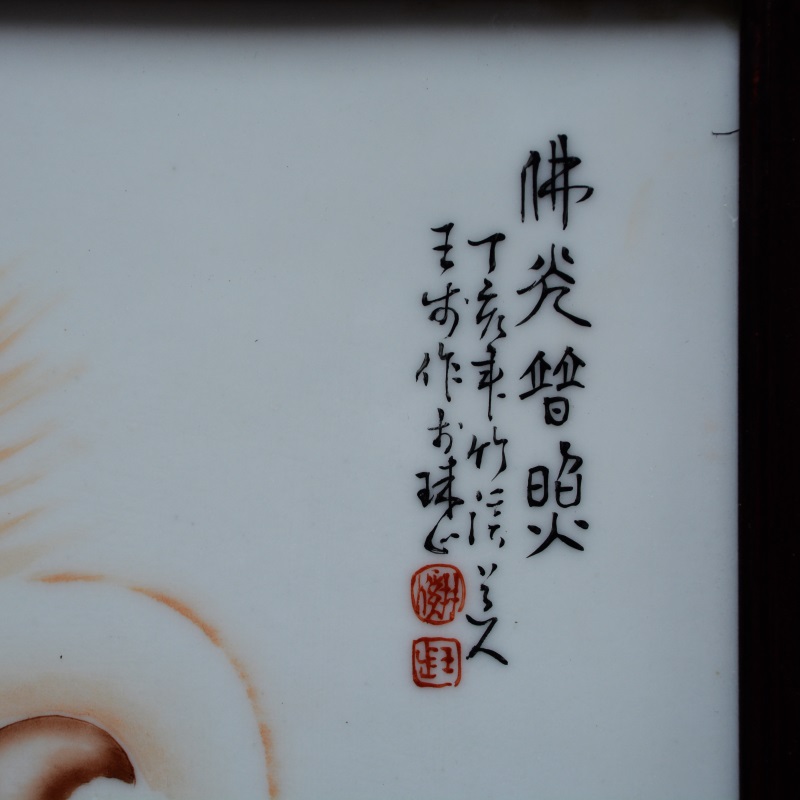 佛光普照
丁亥年竹溪道人
王步作於珠山